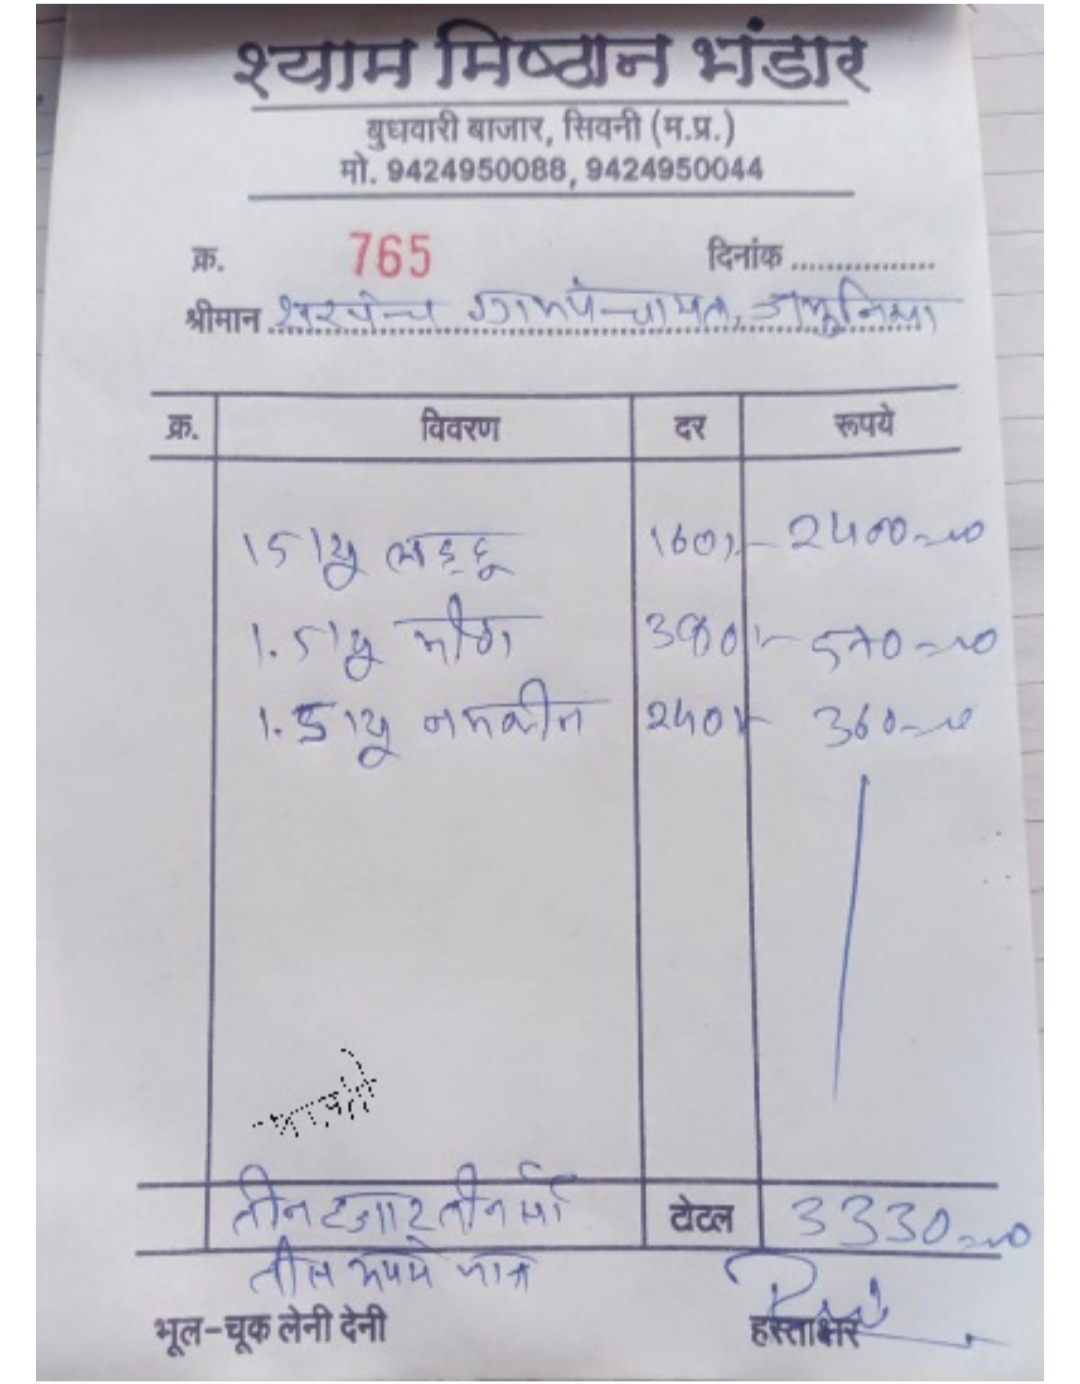 श्याम मिष्ठान भंडार
बुधवारी बाजार, सिवनी (म.प्र.)
मो. 9424950088, 9424950044
क्र. 765 दिनांक
श्रीमान सरपंच ग्रामपंचायत, जामुनिया
क्र. विवरण दर रूपये
15 लड्डू 160/- 2400=00
1.5 मीठा 380/- 570=00
1.5 नमकीन 240/- 360=00
तीन हजार तीन सौ टोटल 3330=00
तीस रूपये मात्र
भूल-चूक लेनी देनी हस्ताक्षर